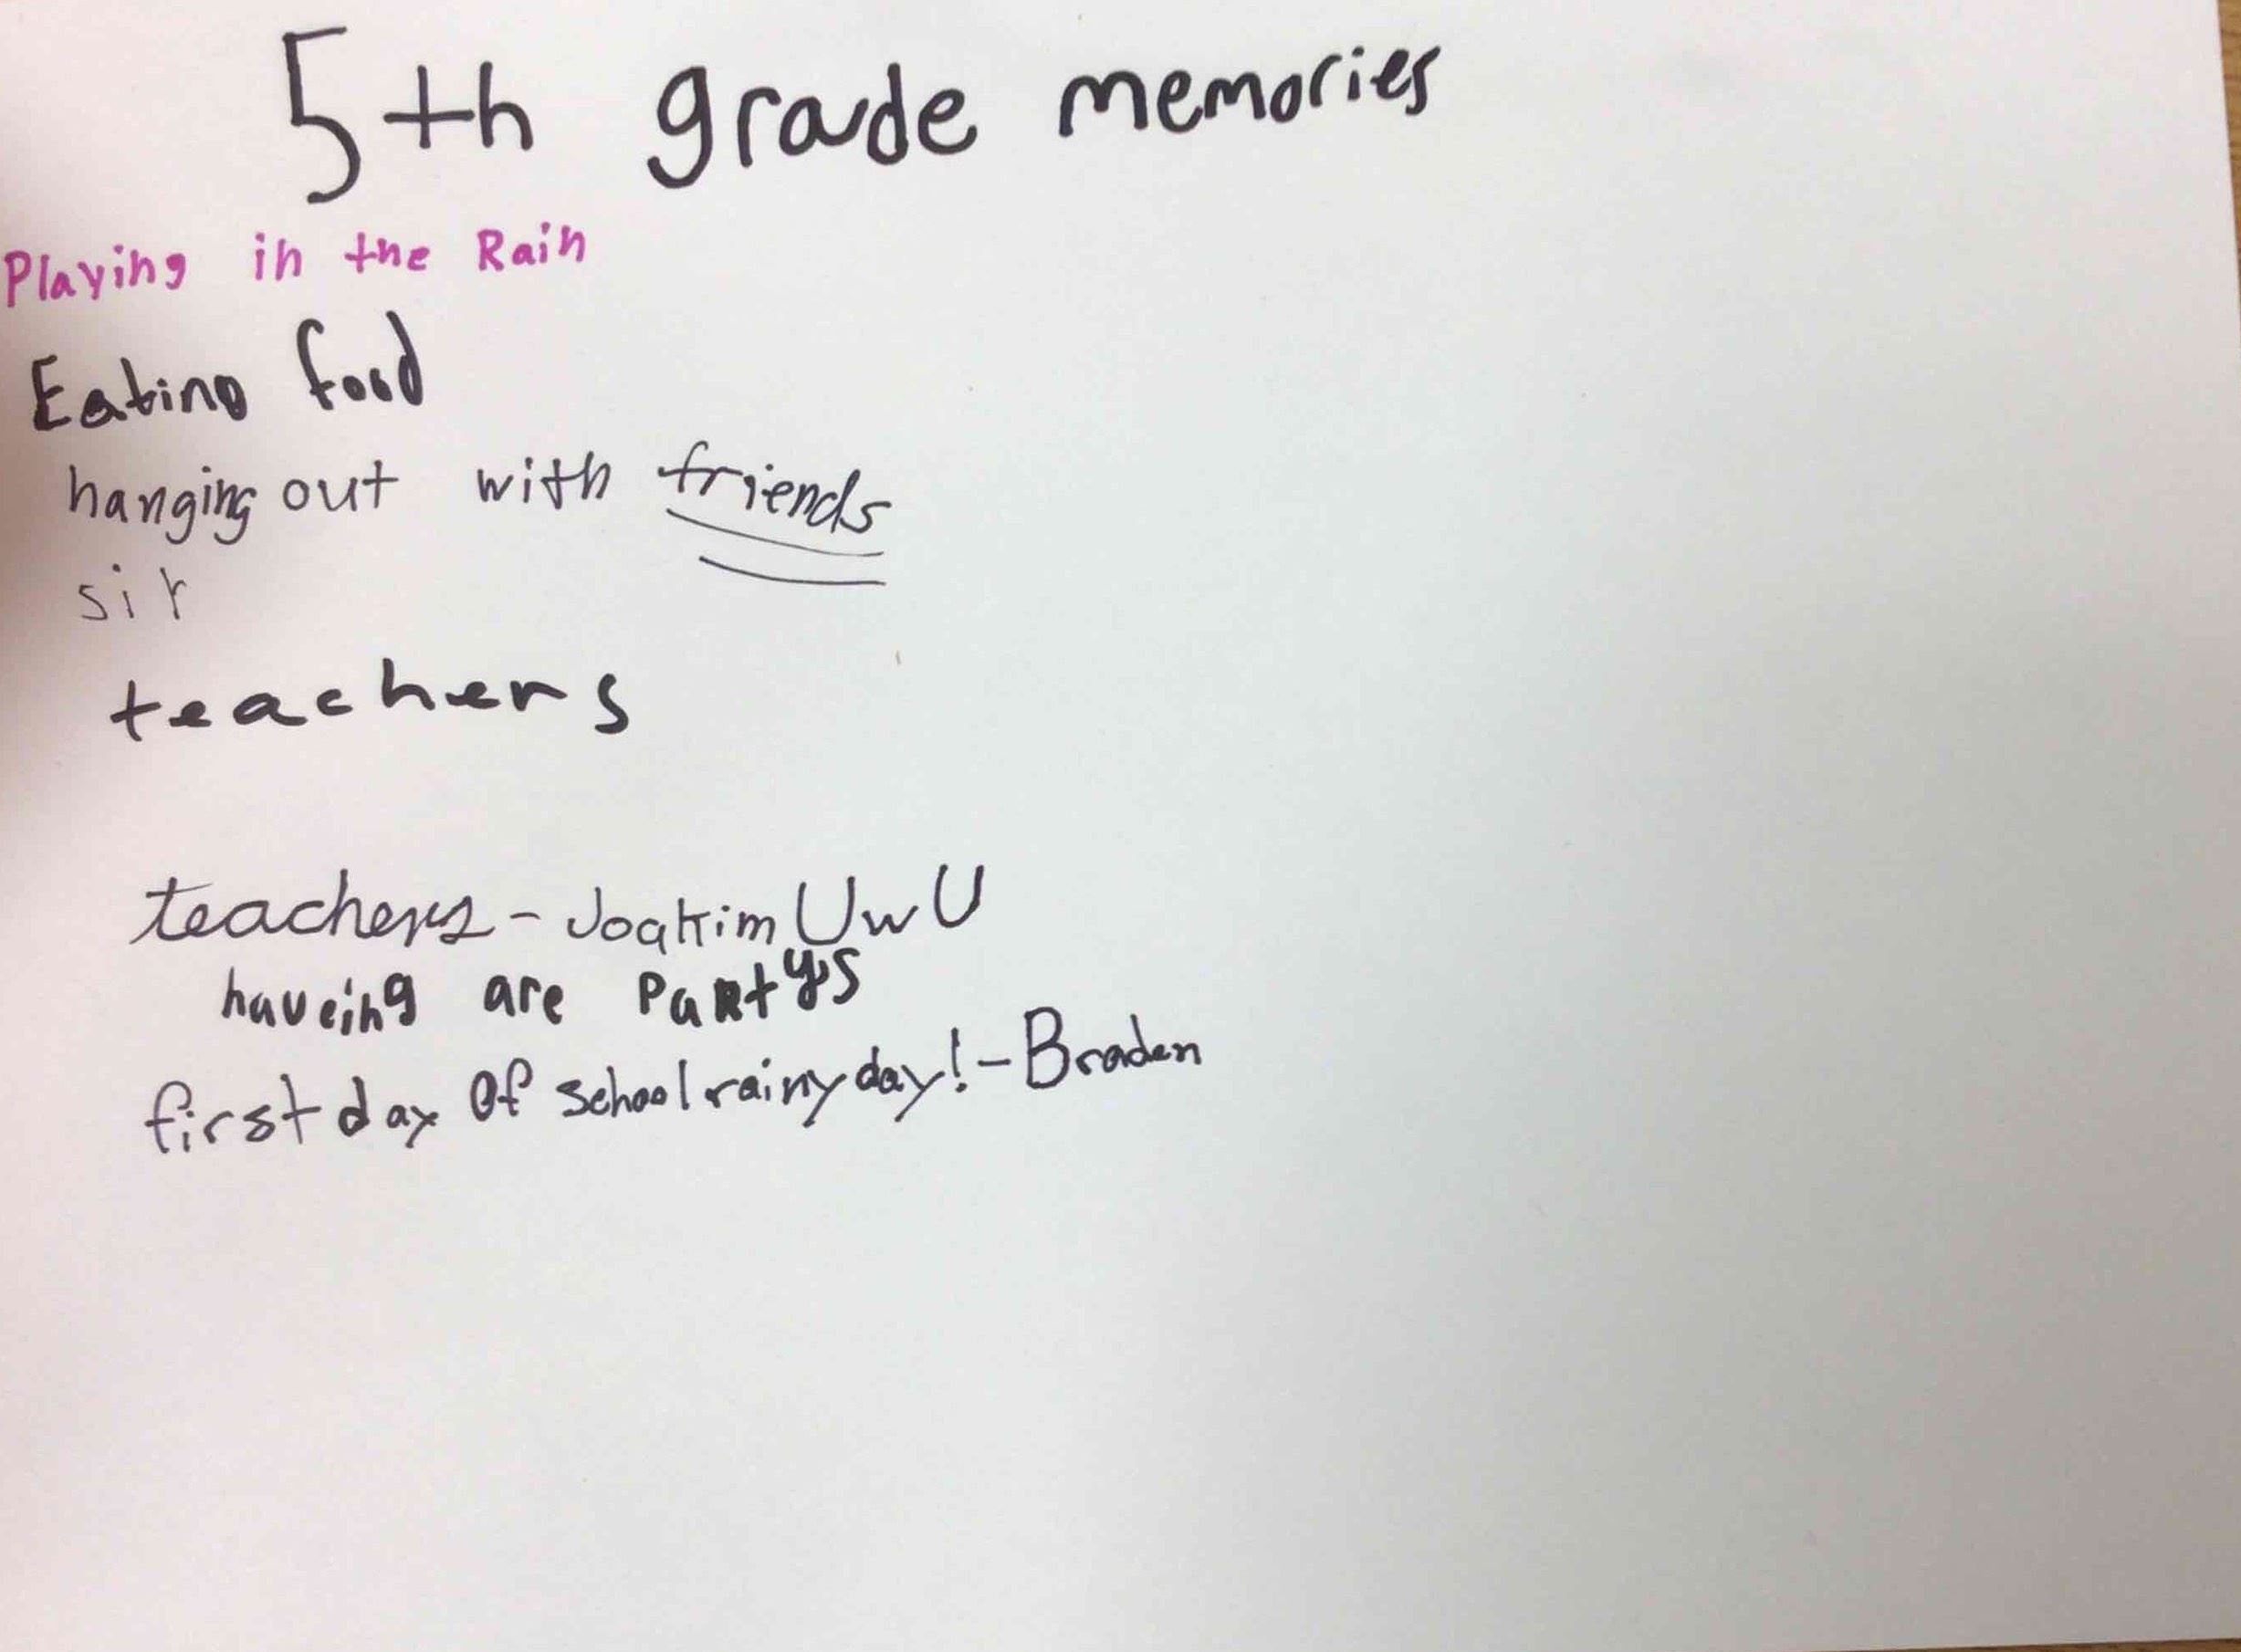 5th grade memories
Playing in the Rain
Eating food
hanging out with friends
sir
teachers
teachers - Joakim UwU
haveing are Partys
first day Of school rainy day! - Braden